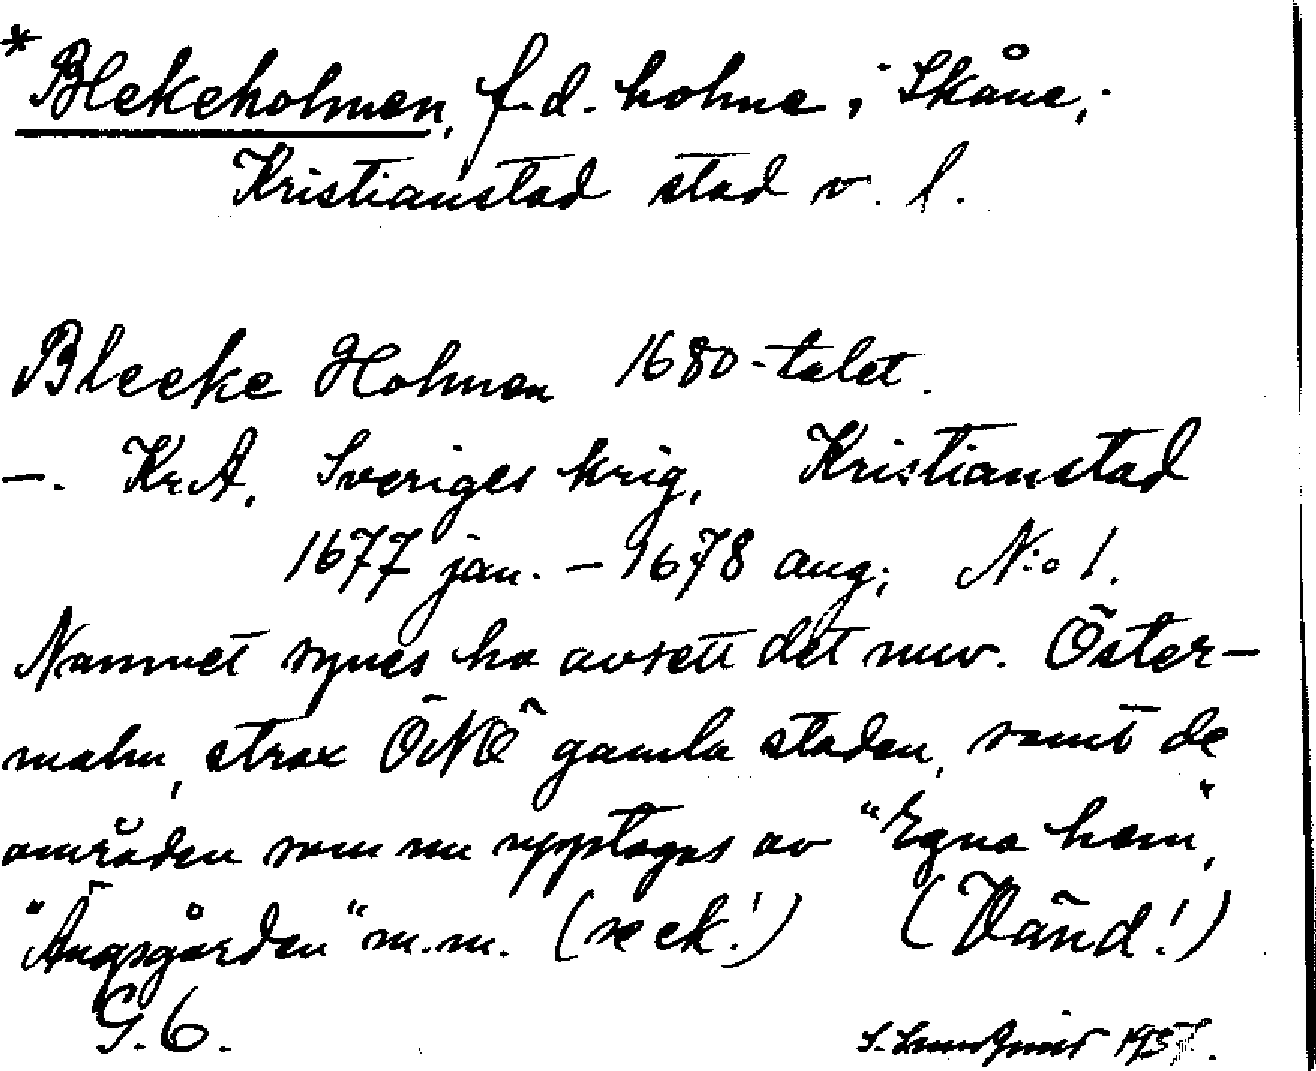 * Blekeholmen, f.d. holme i Skåne,
Kristianstad stad v. l.
Bleeke Holmen 1680-talet.
–. KrA, Sveriges krig, Kristianstad
1677 jan. – 1678 aug; N:o 1.
Namnet synes ha avsett det nuv. Öster-
malm, strax ÖNÖ gamla staden, samt de
områden som nu upptages av "Egna hem",
"Ängsgården" m.m. (se ek.!) (Vänd!)
G. 6.
1957.